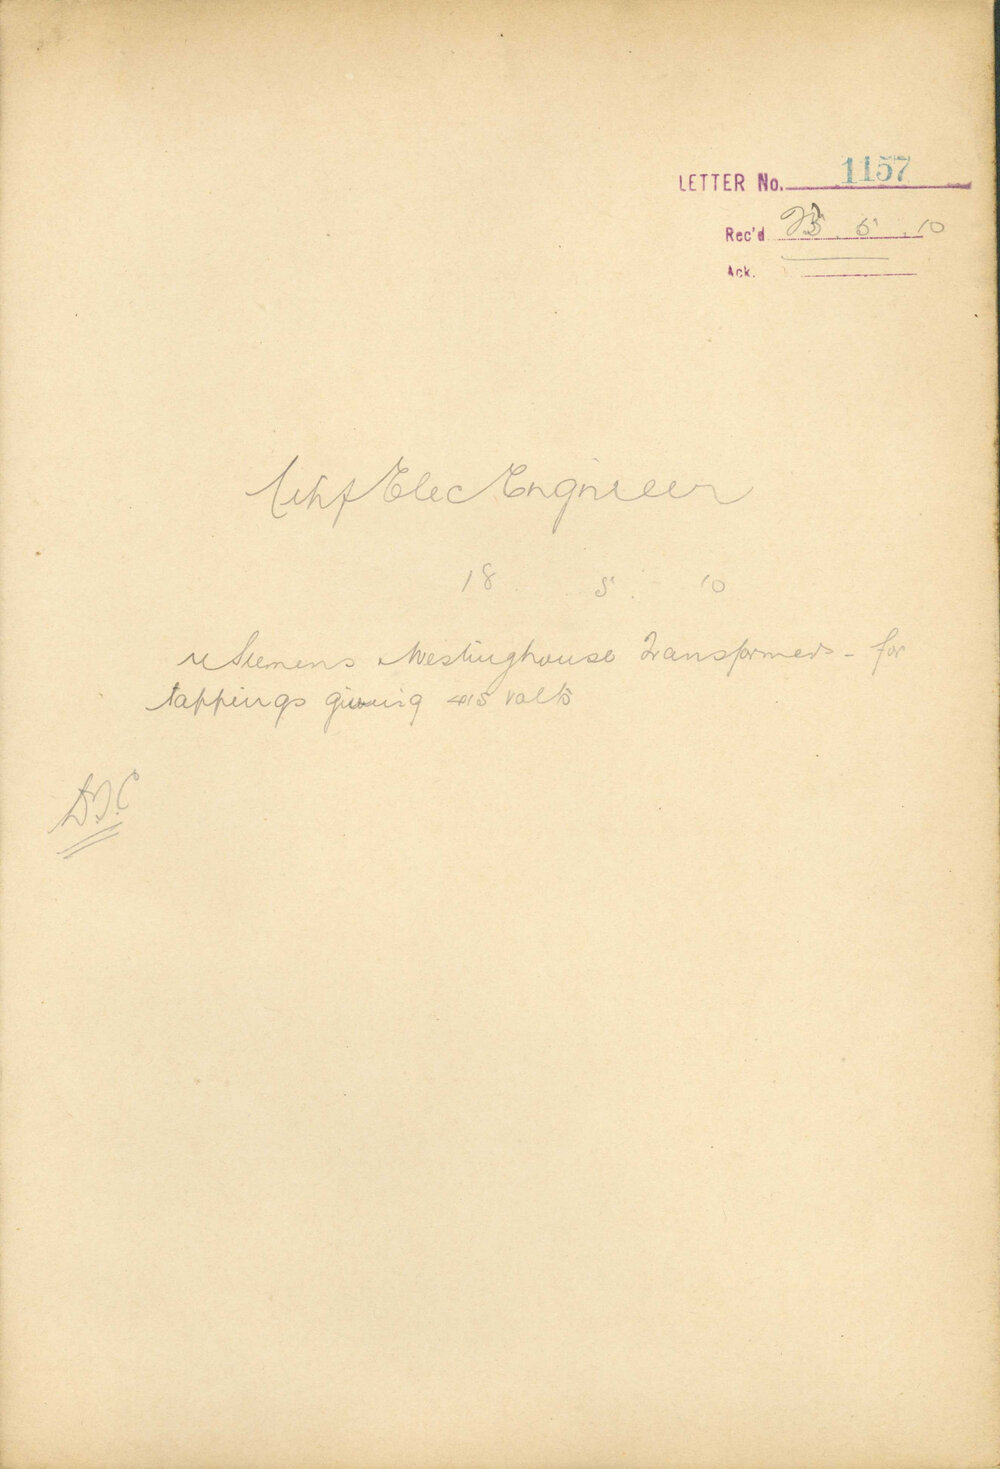 LETTER No. 1157
Rec'd 25. 5. 10
Ack.
Chf Elec Engineer
18 . 5 . 10
re Siemens Westinghouse Transformers - for
tappings giving 415 volts